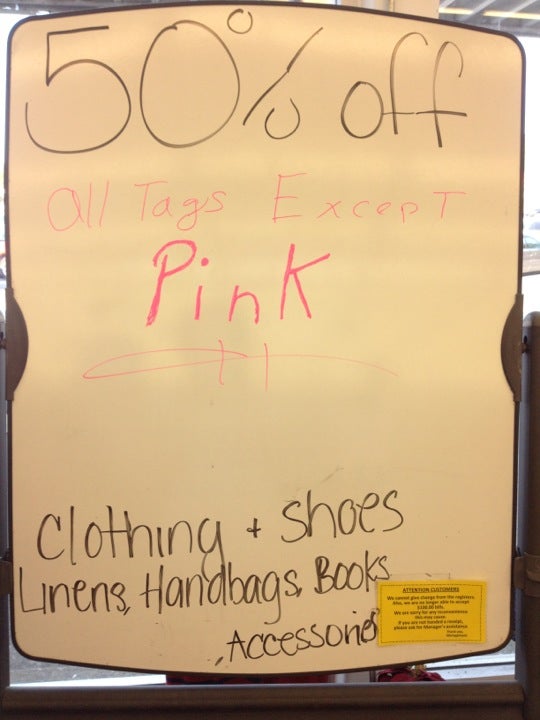 50% off
All Tags Except
Pink
Clothing + Shoes
Linens, Handbags, Books
, Accessories
ATTENTION CUSTOMERS
We cannot give change from the registers.
Also, we are no longer able to accept
$100.00 bills.
We are sorry for any inconvenience
this may cause.
If you are not handed a receipt,
please ask for Manager's assistance.
Thank you,
Management